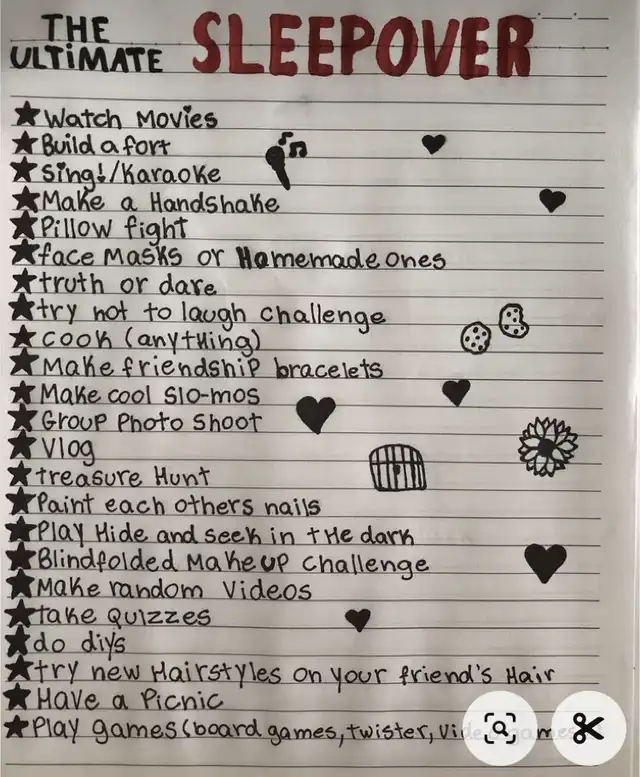 THE
ULTiMATE SLEEPOVER
Watch Movies
Build a fort
Sing!/Karaoke
Make a Handshake
Pillow fight
face Masks or Homemade ones
truth or dare
try not to laugh challenge
cook (anything)
Make friendship bracelets
Make cool slo-mos
Group Photo Shoot
Vlog
treasure Hunt
Paint each others nails
Play Hide and seek in the dark
Blindfolded Makeup challenge
Make random Videos
take Quizzes
do diys
try new Hairstyles on your friend's Hair
Have a Picnic
Play games (board games, twister, video games